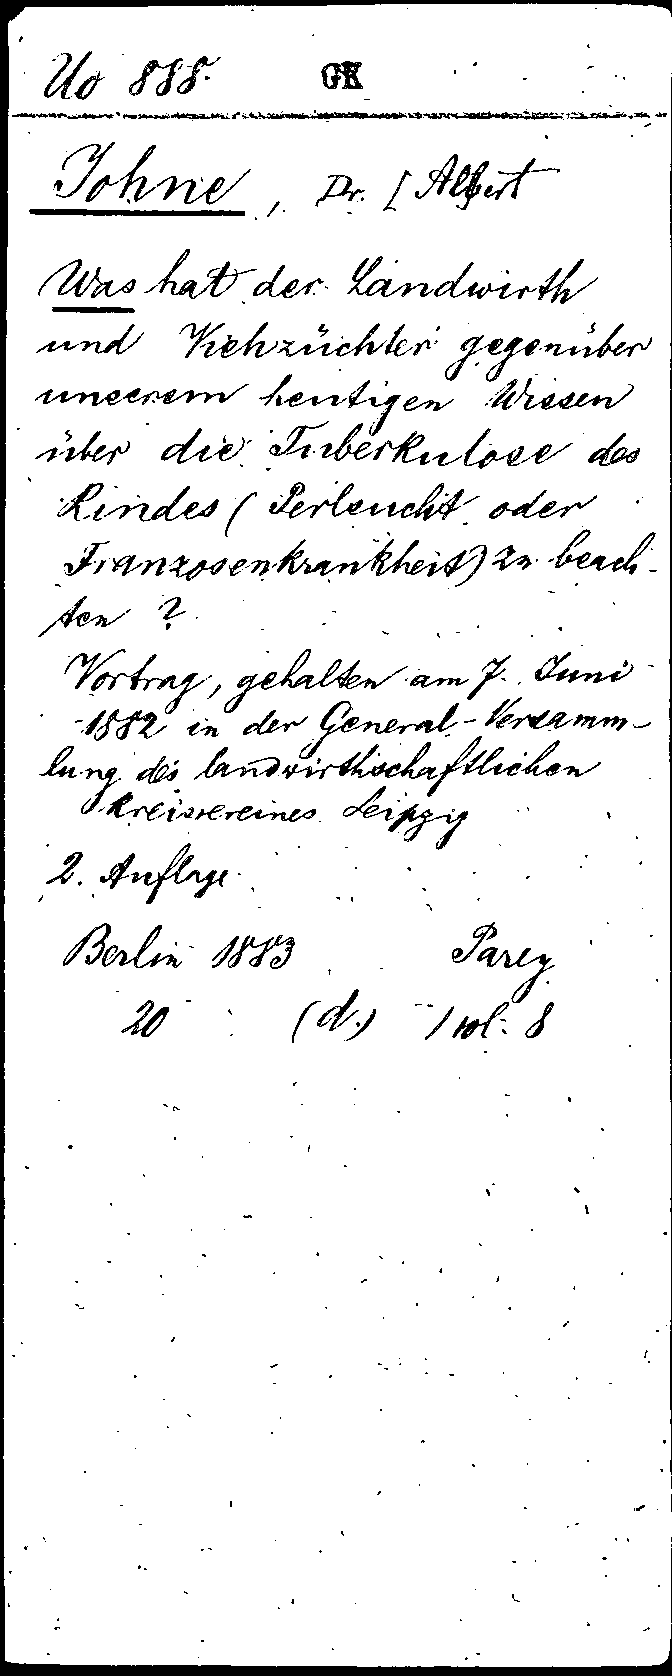 Uo 888. GK
Johne, Dr. [Albert
Was hat der Landwirth
und Viehzüchter gegenüber
unserem heutigen Wissen
über die Tuberkulose des
Rindes (Perlsucht oder
Franzosenkrankheit) zu beach-
ten ?
Vortrag, gehalten am 7. Juni
1882 in der General-Versamm-
lung des landwirthschaftlichen
Kreisvereines Leipzig
2. Auflage
Berlin 1883 Parey
20 (d.) 1 vol. 8